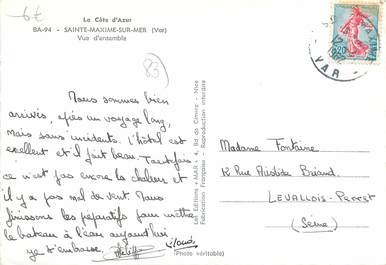 6€
La Côte d'Azur
BA-94 - SAINTE-MAXIME-SUR-MER (Var)
Vue d'ensemble
83
Nous sommes bien
arrivés, après un voyage long,
mais sans incidents. L'hôtel est
excellent et il fait beau. Toutefois
ce n'est pas encore la chaleur et
il y a pas mal de vent. Nous
finissons les préparatifs pour mettre
le bateau à l'eau aujourd'hui
je t'embrasse
(Photo véritable)
Les Editions "MAR" - 4, Bd de Cimiez - Nice
Fabrication Française - Reproduction interdite
0,20
VAR
Madame Fontaine
12 Rue Aristide Briand
LEVALLOIS-PERRET
(Seine)